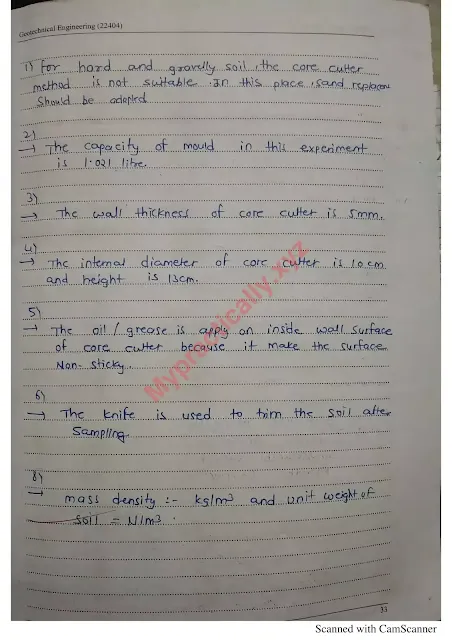 Geotechnical Engineering (22404)
1) For hard and gravelly soil, the core cutter
method is not suitable. In this place, sand replacment
should be adopted
2)
→ The capacity of mould in this experiment
is 1.021 litre.
3)
→ The wall thickness of core cutter is 5mm.
4)
→ The internal diameter of core cutter is 10cm
and height is 13cm.
5)
→ The oil / grease is apply on inside wall surface
of core cutter because it make the surface
Non-sticky.
6)
→ The knife is used to trim the soil after
Sampling.
8)
→ mass density :- kg/m³ and unit weight of
soil = N/m³.
Mypractically.xyz
33
Scanned with CamScanner